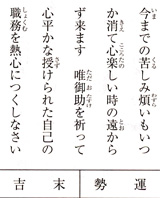 今までの苦しみ煩いもいつ
か消て心楽しい時の遠から
ず来ます　唯御助を祈って
心平かな授けられた自己の
職務を熱心につくしなさい
運勢
末吉